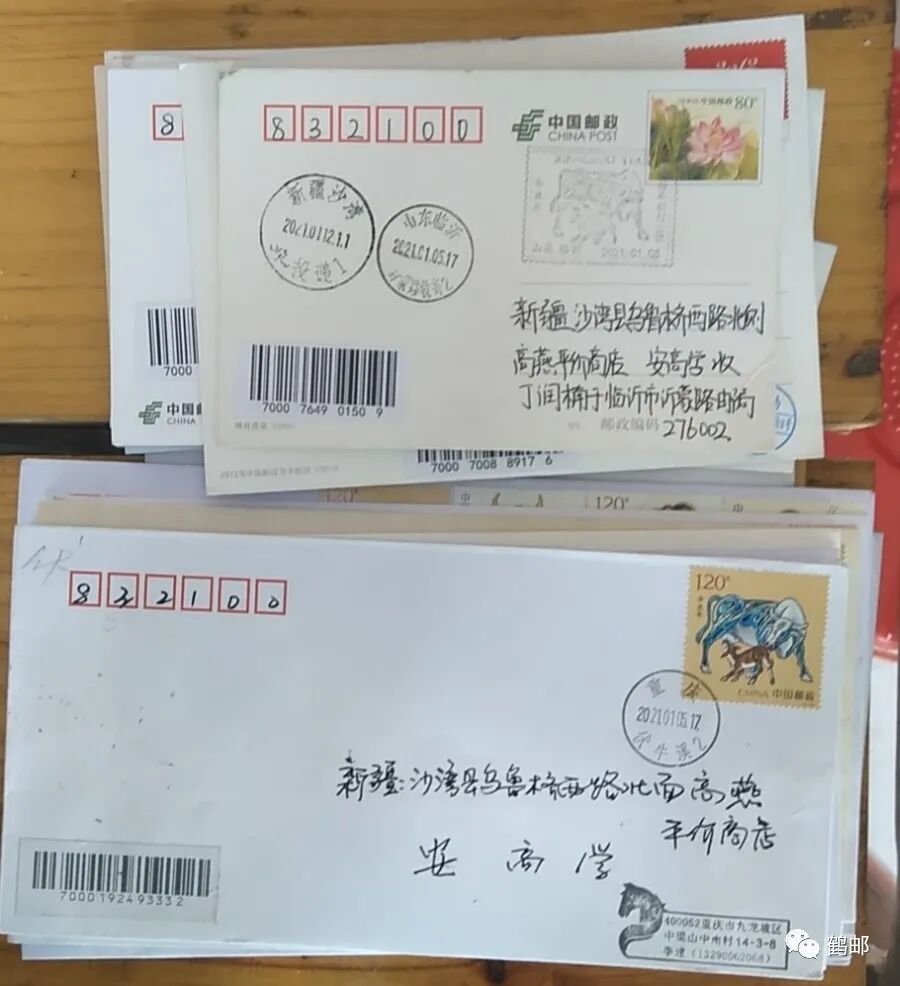 8
832100
中国邮政
CHINA POST
中国邮政 80分
新疆沙湾
2021.01.12.11
山东临沂
2021.01.05.17
山东 临沂 2021.01.05
新疆沙湾县乌鲁木齐西路北侧
高燕平价商店 安高学收
丁润楠于临沂市沂蒙路邮局
邮政编码 276002
7000 7649 0150 9
7000
中国邮
CHINA
7000 7008 8917 6
120分
120分
832100
120分
CHINA 中国邮政
重庆
2021.01.05.17
新疆:沙湾县乌鲁木齐西路北面高燕
平价商店
安高学
7000192493332
400052重庆市九龙坡区
中梁山中南村14-3-8
(13290062068)
鹤邮